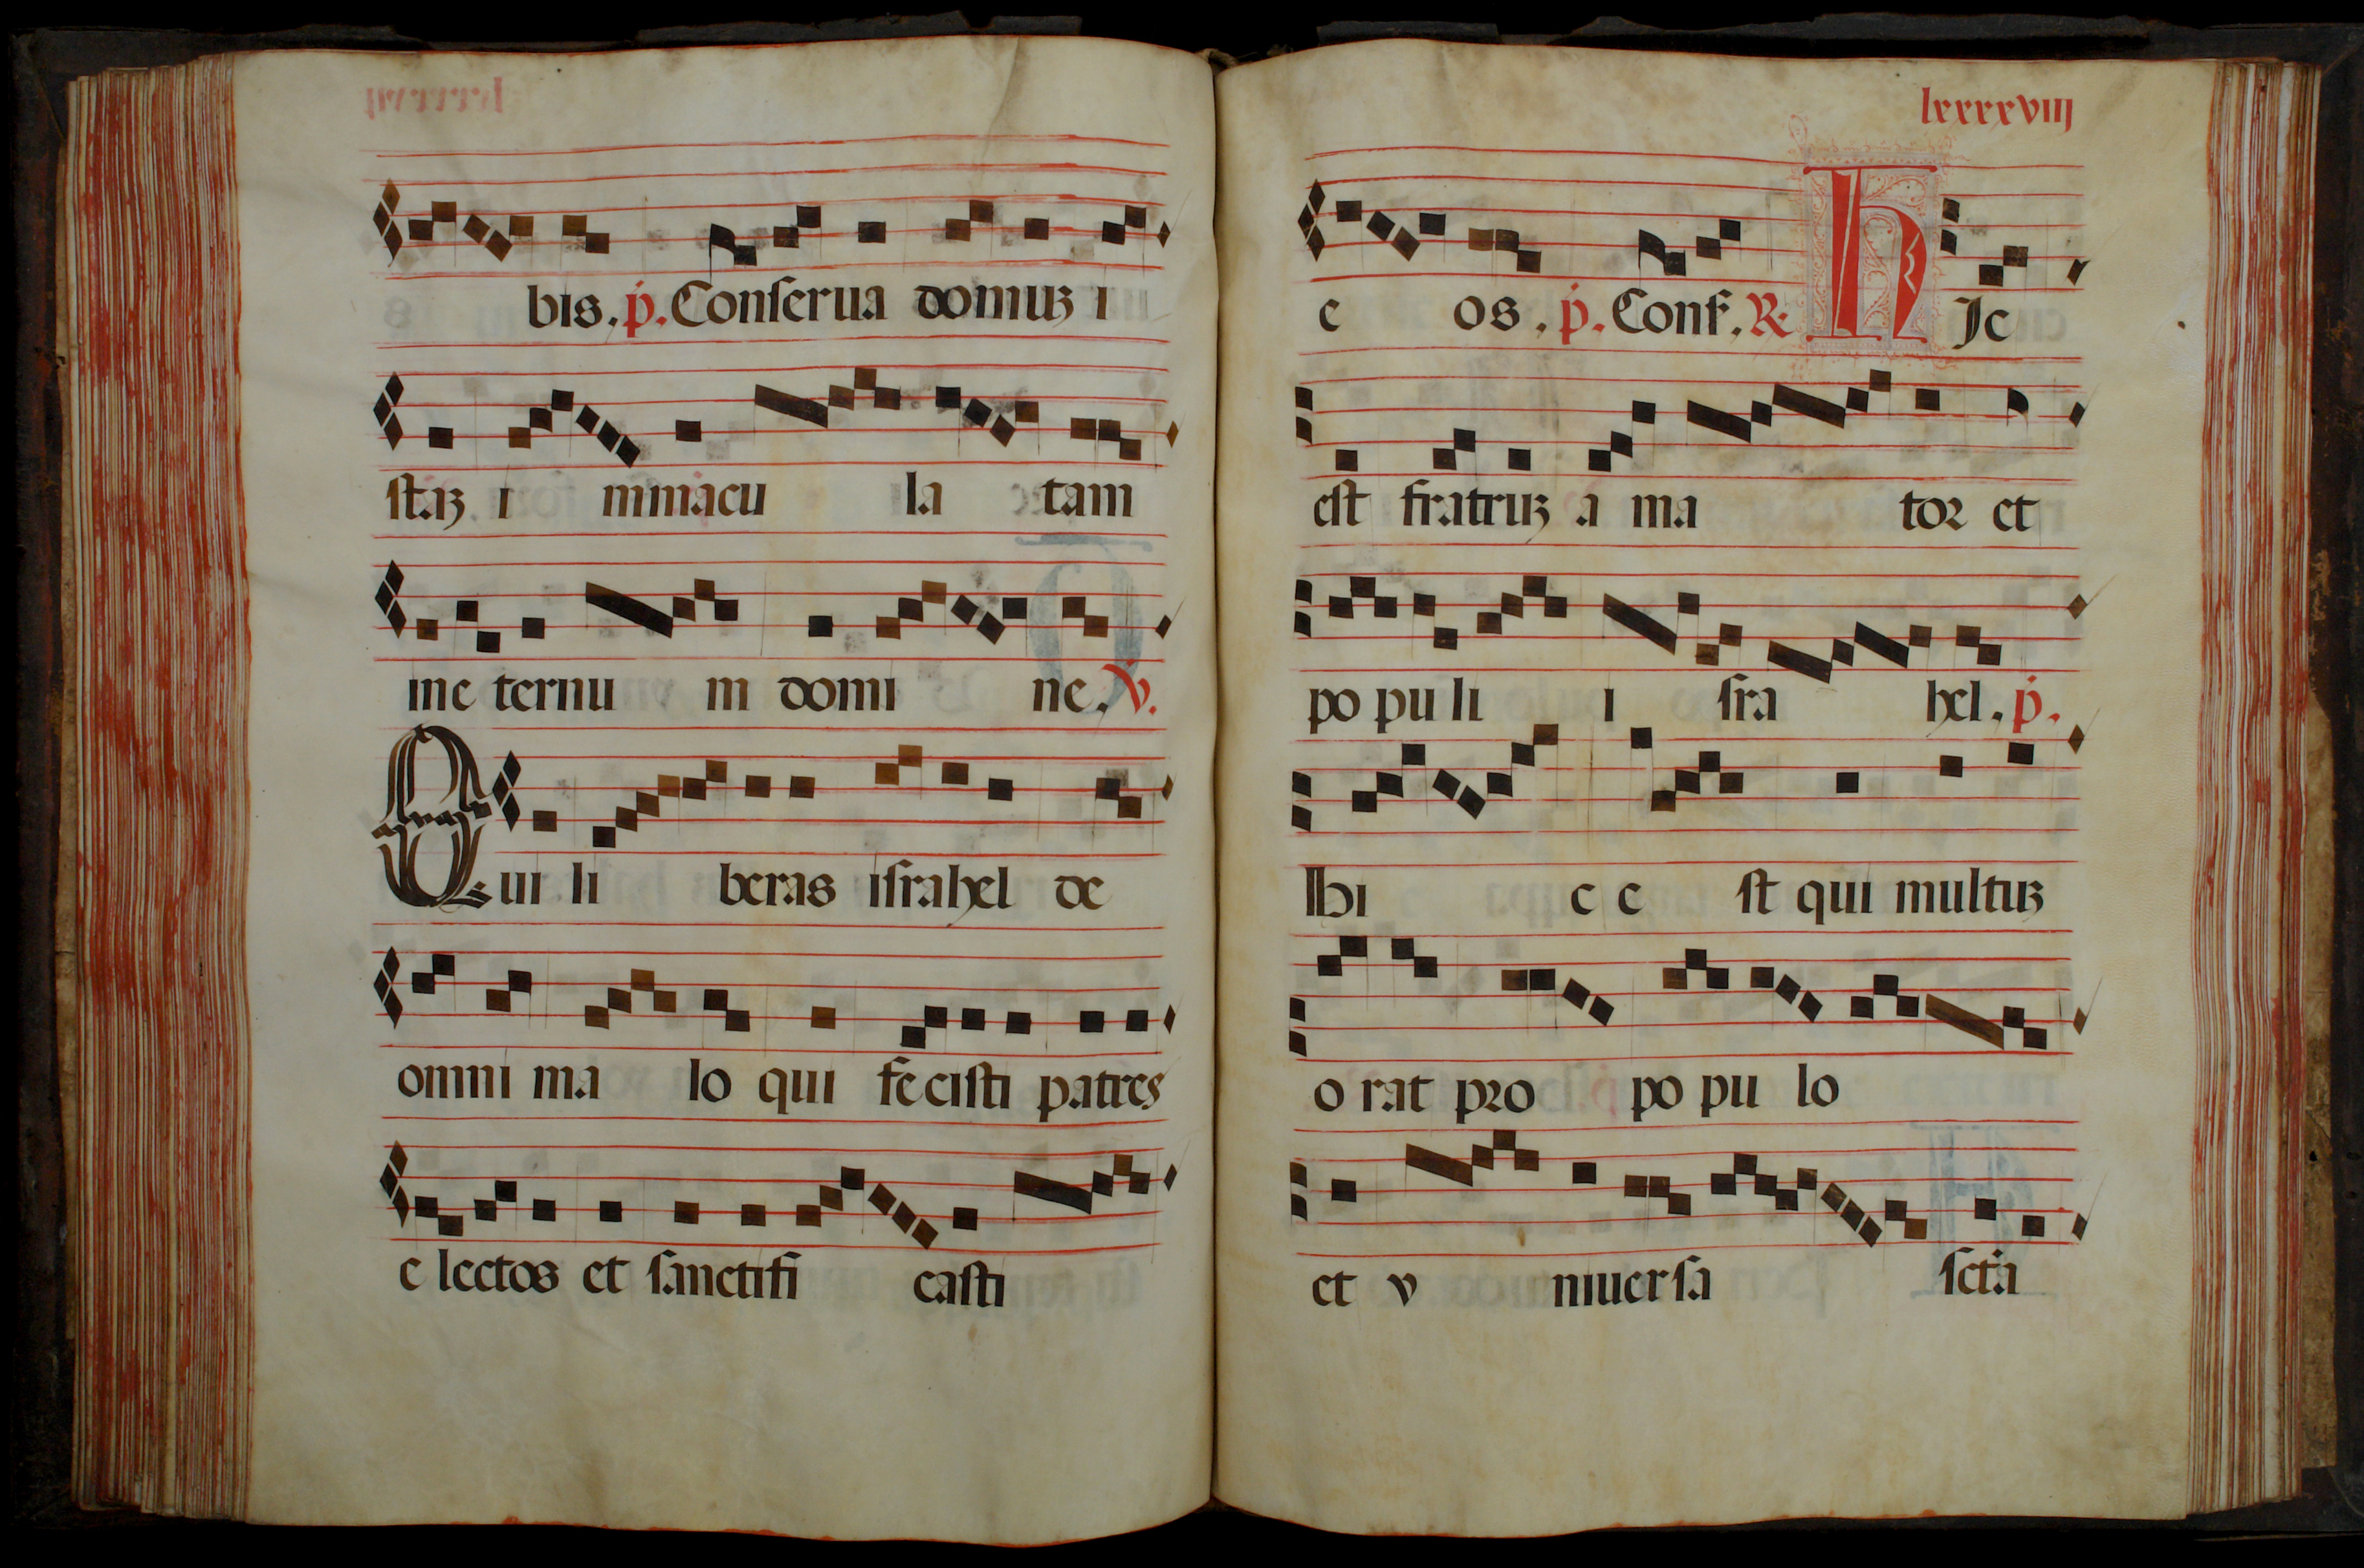 bis. p. Conſerua domuꝫ i
ſtaꝫ i mmacu la tam
ine ternu m domi ne. V.
Qui li beras iſrahel de
omni ma lo qui feciſti patres
e lectos et ſanctifi caſti
lxxxxviij
e os. p. Conſ. R. HJc
eſt fratruꝫ a ma toꝛ et
po pu li i ſra hel. p.
Hi c e ſt qui multuꝫ
o rat pꝛo po pu lo
et v niuerſa ſcta